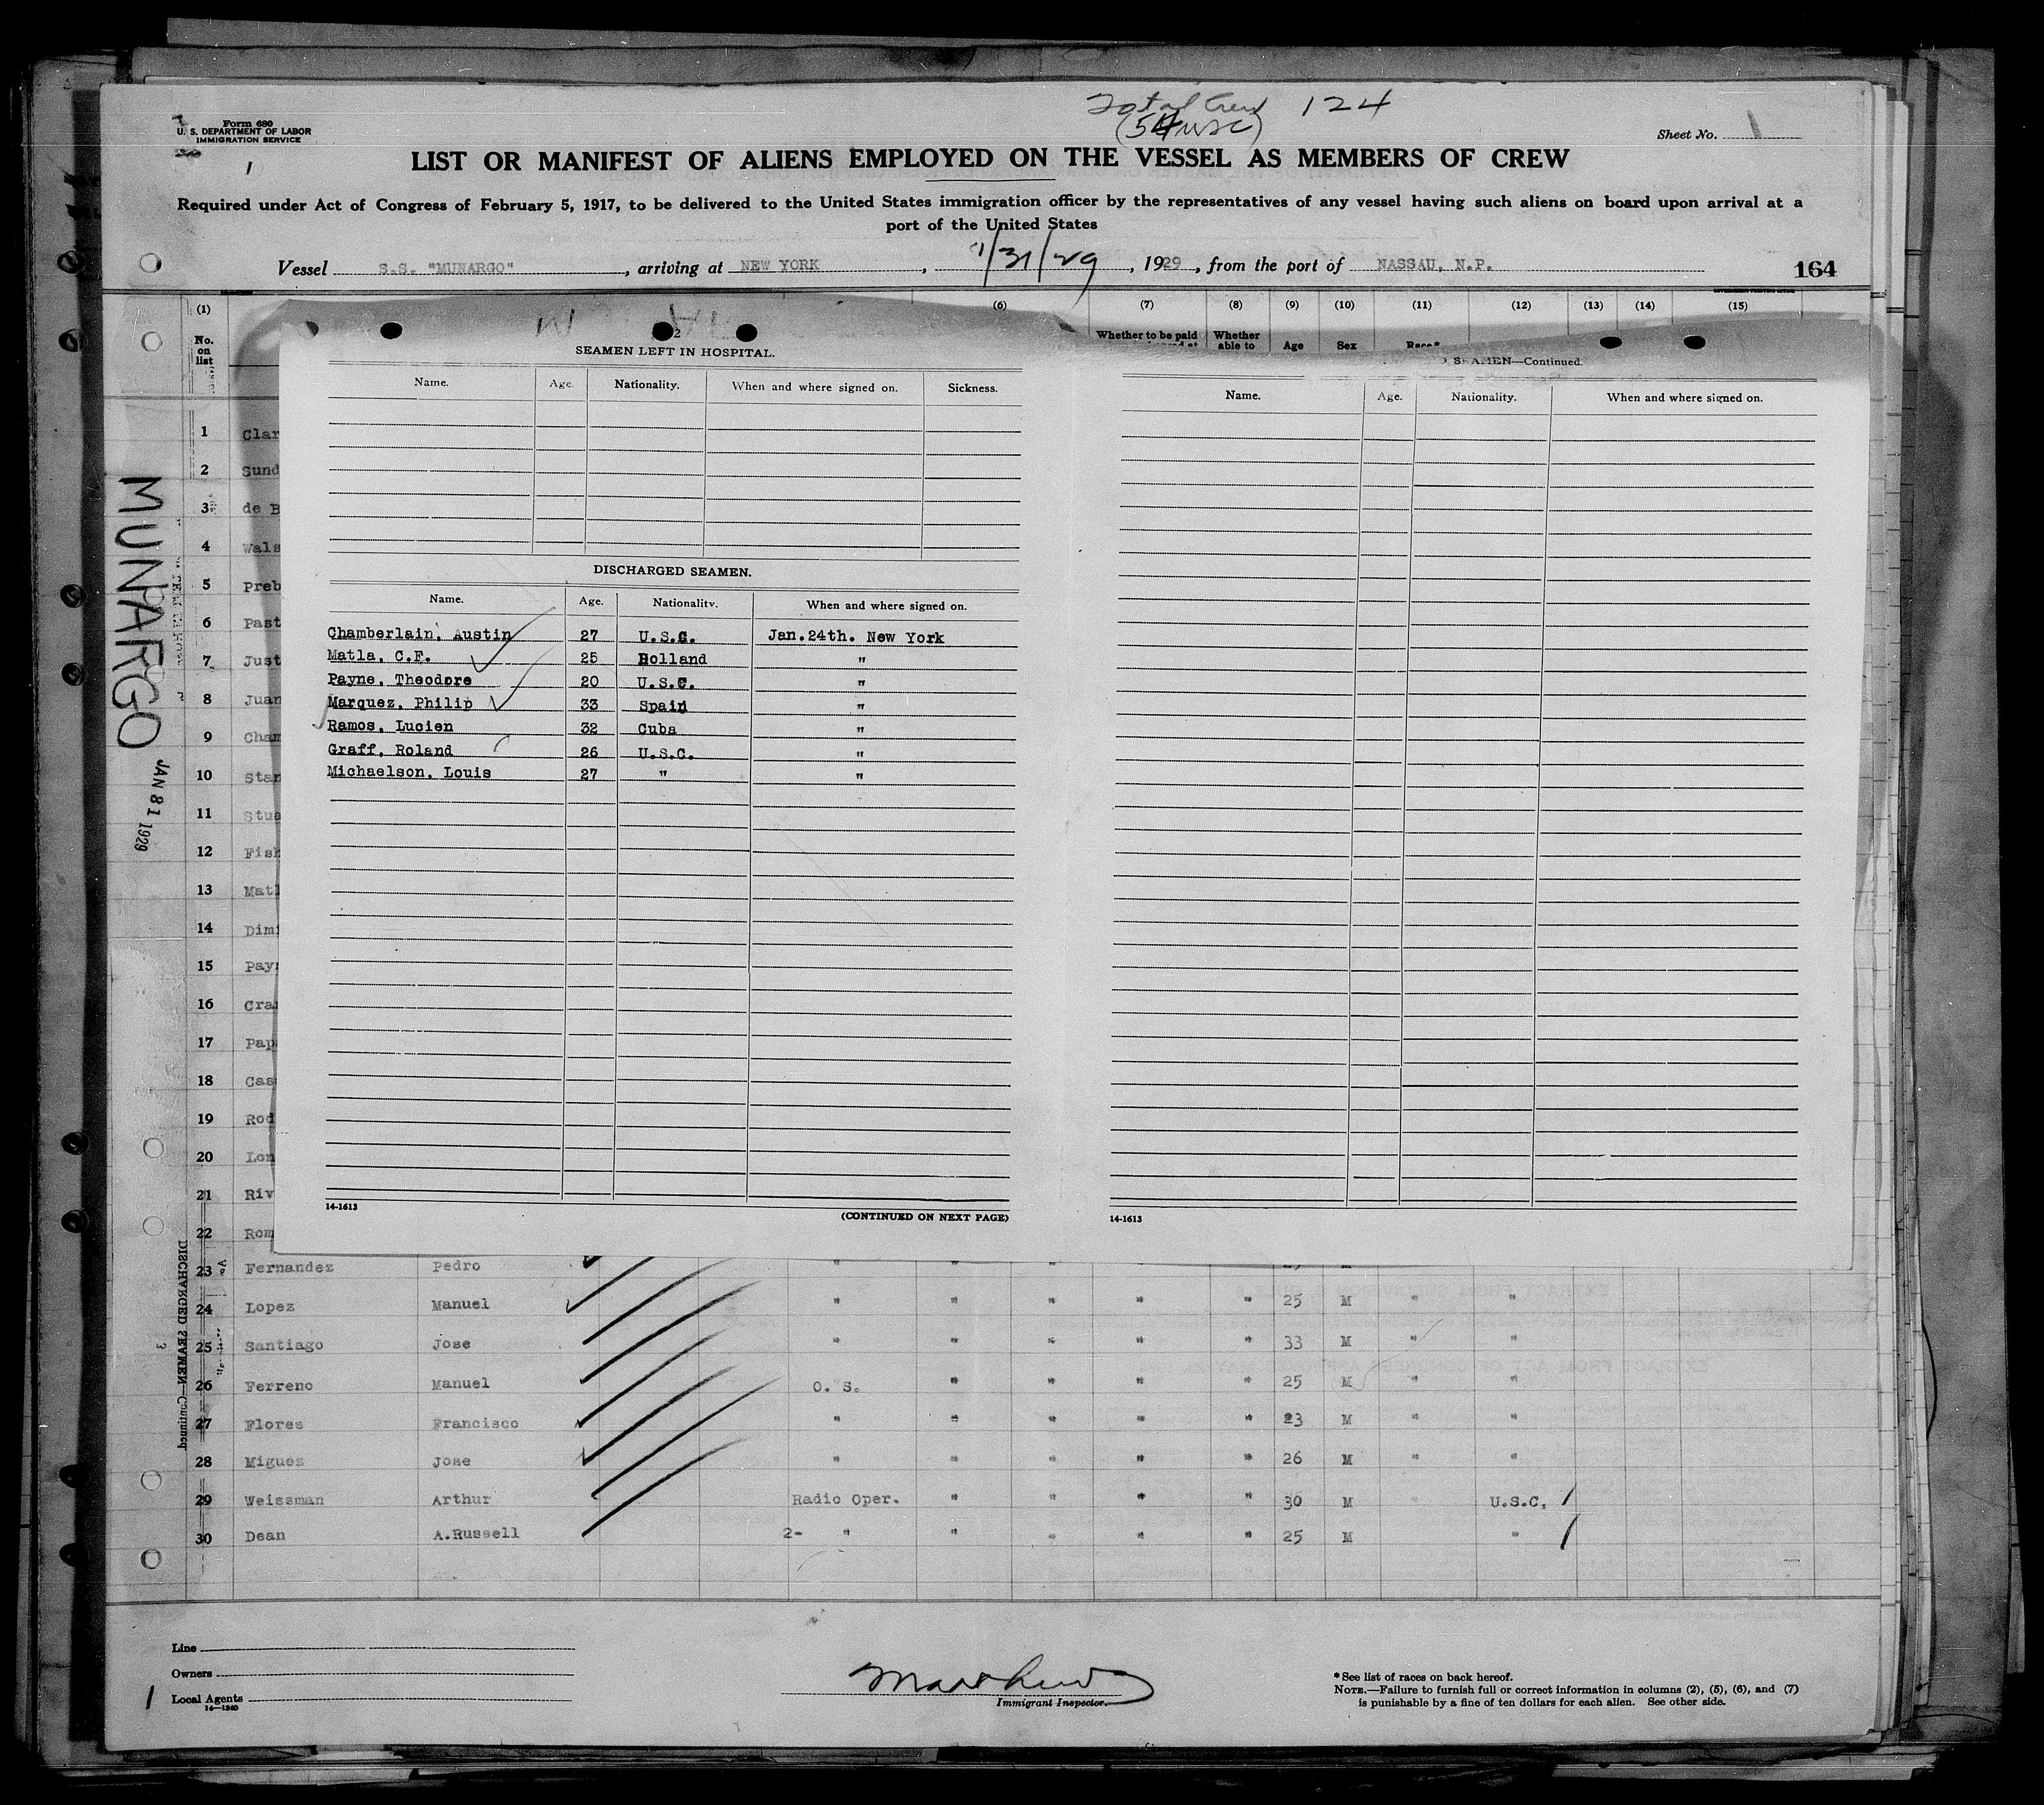 Total Crew 124
(54 USC)
Form 680
U. S. DEPARTMENT OF LABOR
IMMIGRATION SERVICE
1
Sheet No. 1
LIST OR MANIFEST OF ALIENS EMPLOYED ON THE VESSEL AS MEMBERS OF CREW
Required under Act of Congress of February 5, 1917, to be delivered to the United States immigration officer by the representatives of any vessel having such aliens on board upon arrival at a
port of the United States
Vessel S.S. "MUNARGO", arriving at NEW YORK, 1/31/29, 1929, from the port of NASSAU, N.P.
164
(1) (6) (7) (8) (9) (10) (11) (12) (13) (14) (15)
No. on list
Whether to be paid
Whether able to
Age Sex Race*
2
SEAMEN LEFT IN HOSPITAL.
Name. Age. Nationality. When and where signed on. Sickness.
DISCHARGED SEAMEN.
Name. Age. Nationality. When and where signed on.
Chamberlain, Austin 27 U.S.C. Jan.24th. New York
Matla, C.F. 25 Holland "
Payne, Theodore 20 U.S.C. "
Marquez, Philip 33 Spain "
Ramos, Lucien 32 Cuba "
Graff, Roland 26 U.S.C. "
Michaelson, Louis 27 " "
14-1613
(CONTINUED ON NEXT PAGE)
SEAMEN—Continued.
Name. Age. Nationality. When and where signed on.
14-1613
MUNARGO
JAN 31 1929
DISCHARGED SEAMEN—Continued
3
1 Clar
2 Sund
3 de B
4 Wals
5 Preb
6 Past
7 Just
8 Juan
9 Cham
10 Stan
11 Stua
12 Fish
13 Matl
14 Dimi
15 Payn
16 Cra
17 Pap
18 Cas
19 Rod
20 Lon
21 Riv
22 Rom
23 Fernandez Pedro " " " " " M
24 Lopez Manuel " " " " " 25 M " "
25 Santiago Jose " " " " " 33 M " "
26 Ferreno Manuel O. S. " " " " 25 M " "
27 Flores Francisco " " " " " 23 M " "
28 Miguez Jose " " " " " 26 M " "
29 Weissman Arthur Radio Oper. " " " " 30 M " U.S.C.
30 Dean A.Russell 2- " " " " " 25 M "
Line
Owners
Local Agents
14—1240
1
Immigrant Inspector.
*See list of races on back hereof.
NOTE.—Failure to furnish full or correct information in columns (2), (5), (6), and (7)
is punishable by a fine of ten dollars for each alien. See other side.